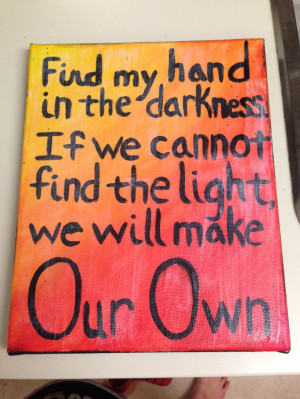 Find my hand
in the darkness.
If we cannot
find the light,
we will make
Our Own